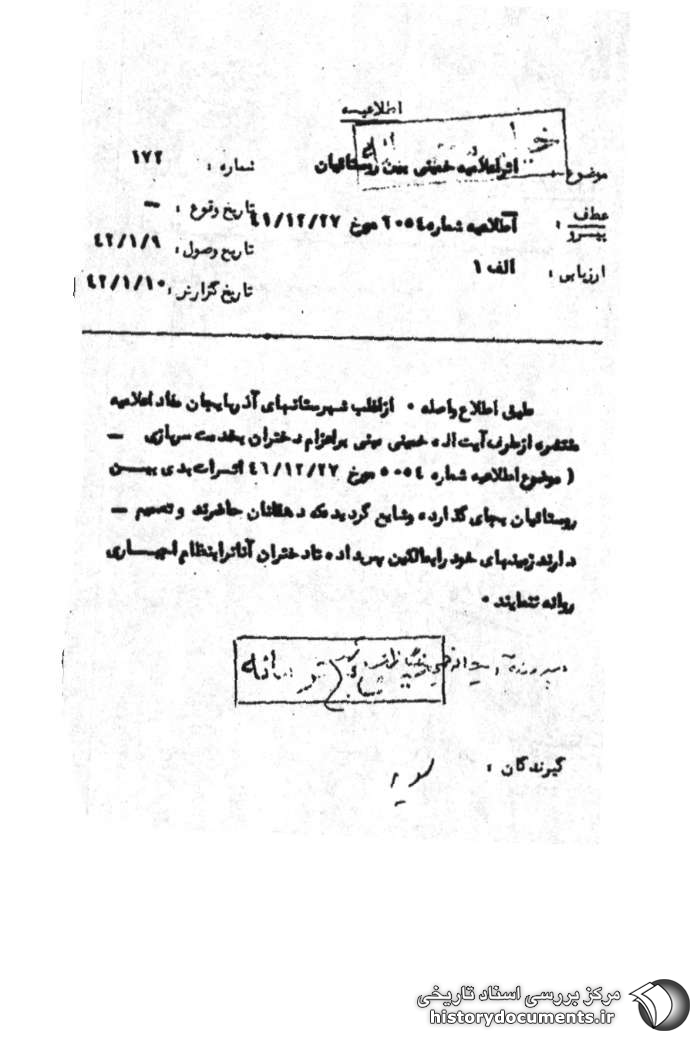 اطلاعیـه
موضوع : اثر اعلامیه خمینی بین روستائیان
شماره : ۱۷۲
عطف
پیـرو : اطلاعیه شماره ۶۰۵۴ مورخ ۴۱/۱۲/۲۷
تاریخ وقوع : —
ارزیابی : الف ۱
تاریخ وصول : ۴۲/۱/۹
تاریخ گزارش : ۴۲/۱/۱۰
طبق اطلاع واصله ۰ از اغلب شهرستانهای آذربایجان مفاد اعلامیه
منتشره از طرف آیت اله خمینی مبنی بر اعزام دختران بخدمت سربازی —
( موضوع اطلاعیه شماره ۵۰۵۴ مورخ ۴۱/۱۲/۲۷ اثرات بدی بیـــن
روستائیان بجای گذارده و شایع گردیده که دهقانان حاضرند و تصمیم —
دارند زمینهای خود را بمالکین پس داده تا دختران آنانرا بنظام اجبـــاری
روانه ننمایند ۰
گیرندگان :
مرکز بررسی اسناد تاریخی
historydocuments.ir